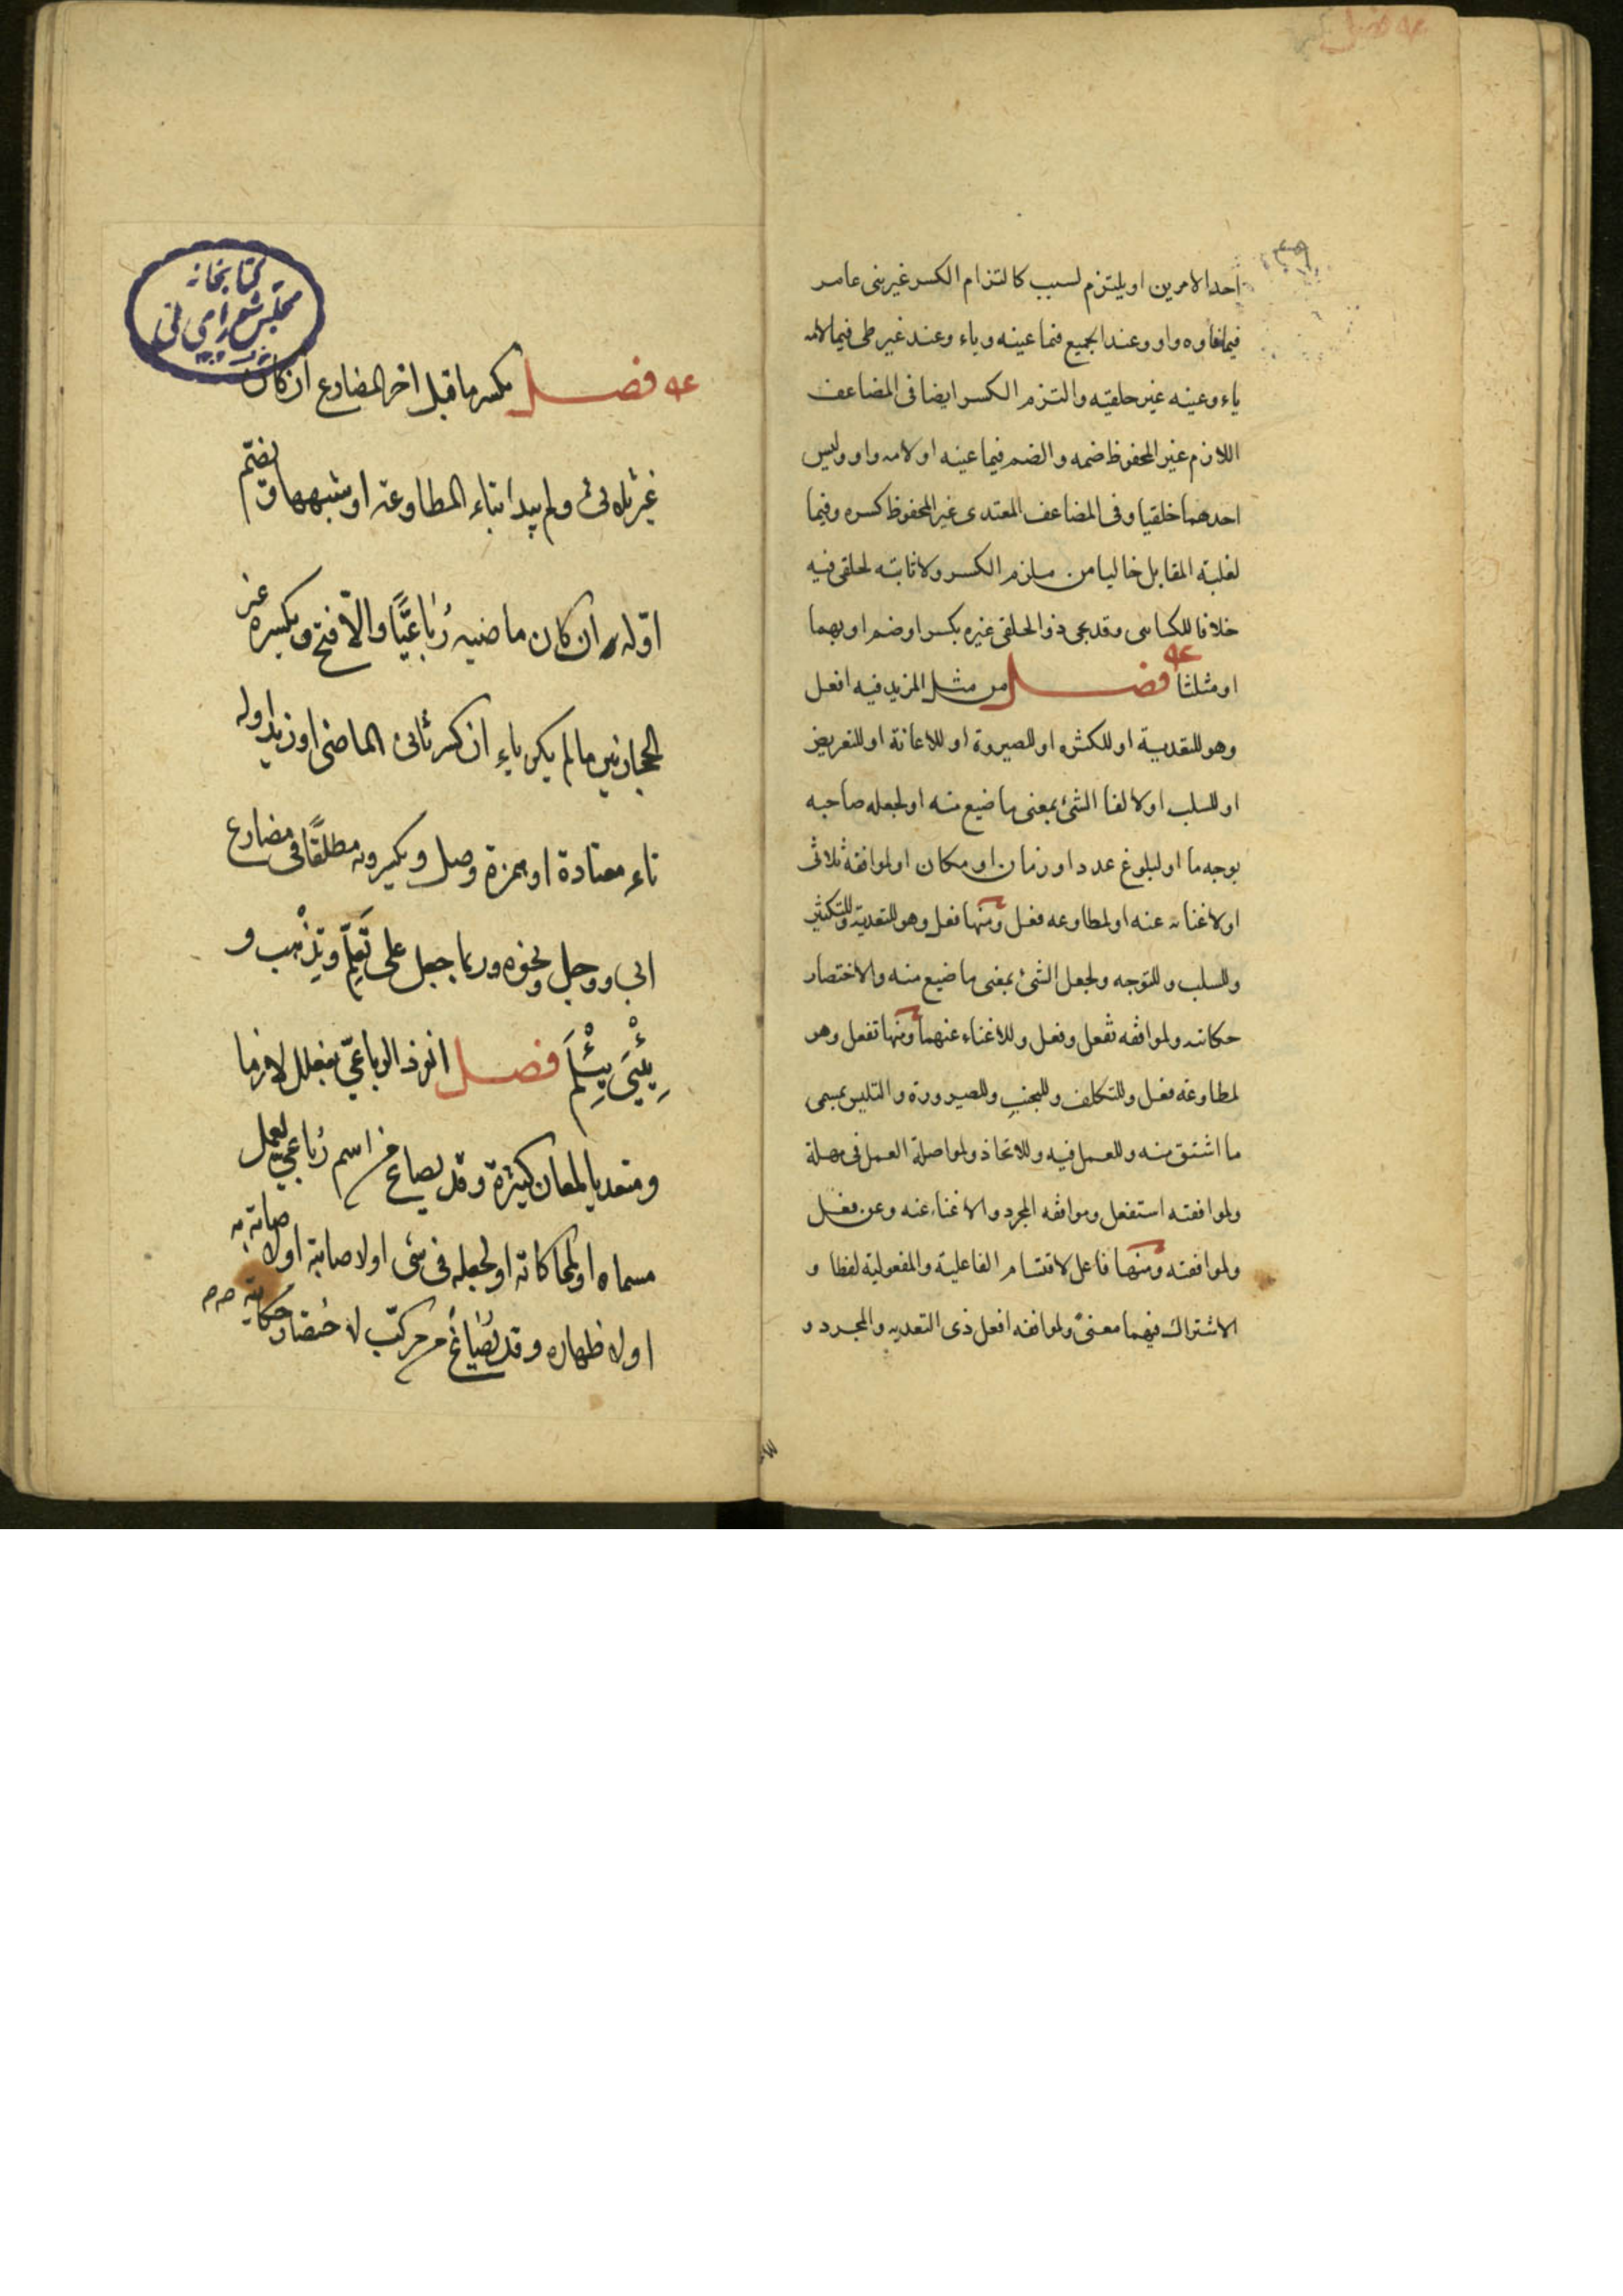 احد الامرين او يلتزم لسبب كالتزام الكسر غير بنى عامر
فيما فاوه واو وعند الجميع فيما عينه ياء وعند غير طى فيما لامه
ياء وعينه غير حلقيه والتزم الكسر ايضا فى المضاعف
اللازم غير المحفوظ ضمه والضم فيما عينه او لامه واو وليس
احدهما حلقيا وفى المضاعف المعتدى غير المحفوظ كسره وفيما
لغلبة المقابل خاليا من ملزم الكسر ولا تاثير لحلقى فيه
خلافا للكسائى وقد يجى ذو الحلقى غيره بكسر او ضم او بهما
او مثلثا فصل من مثل المزيد فيه افعل
وهو للتعدية او للكثرة او للصيرورة او للاعانة او للتعريض
او للسلب او لالفا الشئ بمعنى ما ضيع منه او لجعله صاحبه
بوجه ما او لبلوغ عدد او زمان او مكان او لموافقة ثلاثى
او لاغنائه عنه او لمطاوعه فعل ومنها فعل وهو للتعدية وللتكثير
وللسلب وللتوجه ولجعل الشئ بمعنى ما ضيع منه والاختصار
حكاته ولموافقه تفعل وفعل وللاغناء عنهما ومنها تفعل وهو
لمطاوعه فعل وللتكلف وللتجنب وللصيرورة والتلبس بمسمى
ما اشتق منه وللعمل فيه وللاتخاذ ولمواصلة العمل فى مهلة
ولموافقته استفعل وموافقه المجرد والاغناء عنه وعن فعل
ولموافقته ومنها فاعل لاقتسام الفاعلية والمفعولية لفظا و
الاشتراك فيهما معنىً ولموافقه افعل ذى التعديه والمجرد و
كتابخانه
مجلس شوراى ملى
فصل يكسر ما قبل اخر المضارع ان كان
غير ثلاثى ولم يبدا بتاء المطاوعه او شبهها ويضم
اوله ان كان ماضيه رُباعيًّا والّا فتح ويكسره غير
الحجازيين ما لم يكن ياء ان كسر ثانى الماضى او زيد اوله
تاء معتادة او همزة وصل ويكسرونه مطلقًا فى مضارع
ابى ووجل ونحوه وربما حمل على تعلم وتذهب و
يئبى يئلم فصل انفرد الرباعىّ بفعلل لازما
ومتعديا لمعان كثيرة وقد يصاغ من اسم رُباعى لعمل
مسماه او لمحاكاته او لجعله فى شى او لاصابته او لاصابة به
او لاظهاره وقد يُصَاغُ من مركّب لاختصار حكايته